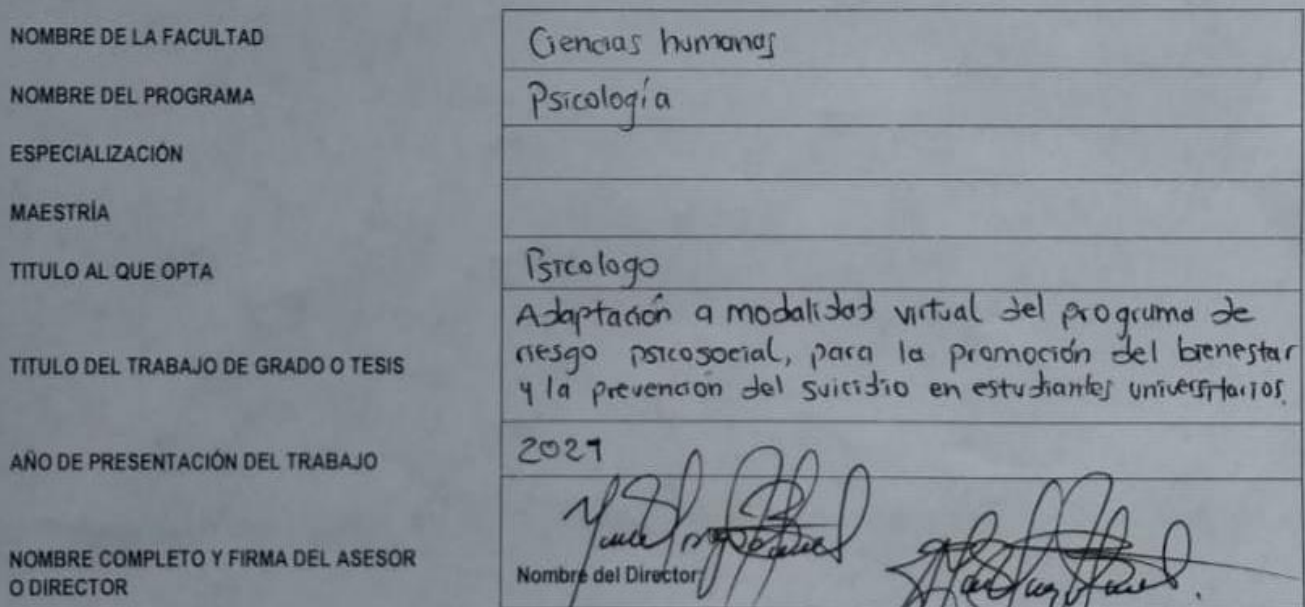 NOMBRE DE LA FACULTAD
Ciencias humanas
NOMBRE DEL PROGRAMA
Psicología
ESPECIALIZACIÓN
MAESTRÍA
TITULO AL QUE OPTA
Psicologo
TITULO DEL TRABAJO DE GRADO O TESIS
Adaptación a modalidad virtual del programa de
riesgo psicosocial, para la promoción del bienestar
y la prevención del suicidio en estudiantes universitarios.
AÑO DE PRESENTACIÓN DEL TRABAJO
2021
NOMBRE COMPLETO Y FIRMA DEL ASESOR
O DIRECTOR
Nombre del Director: